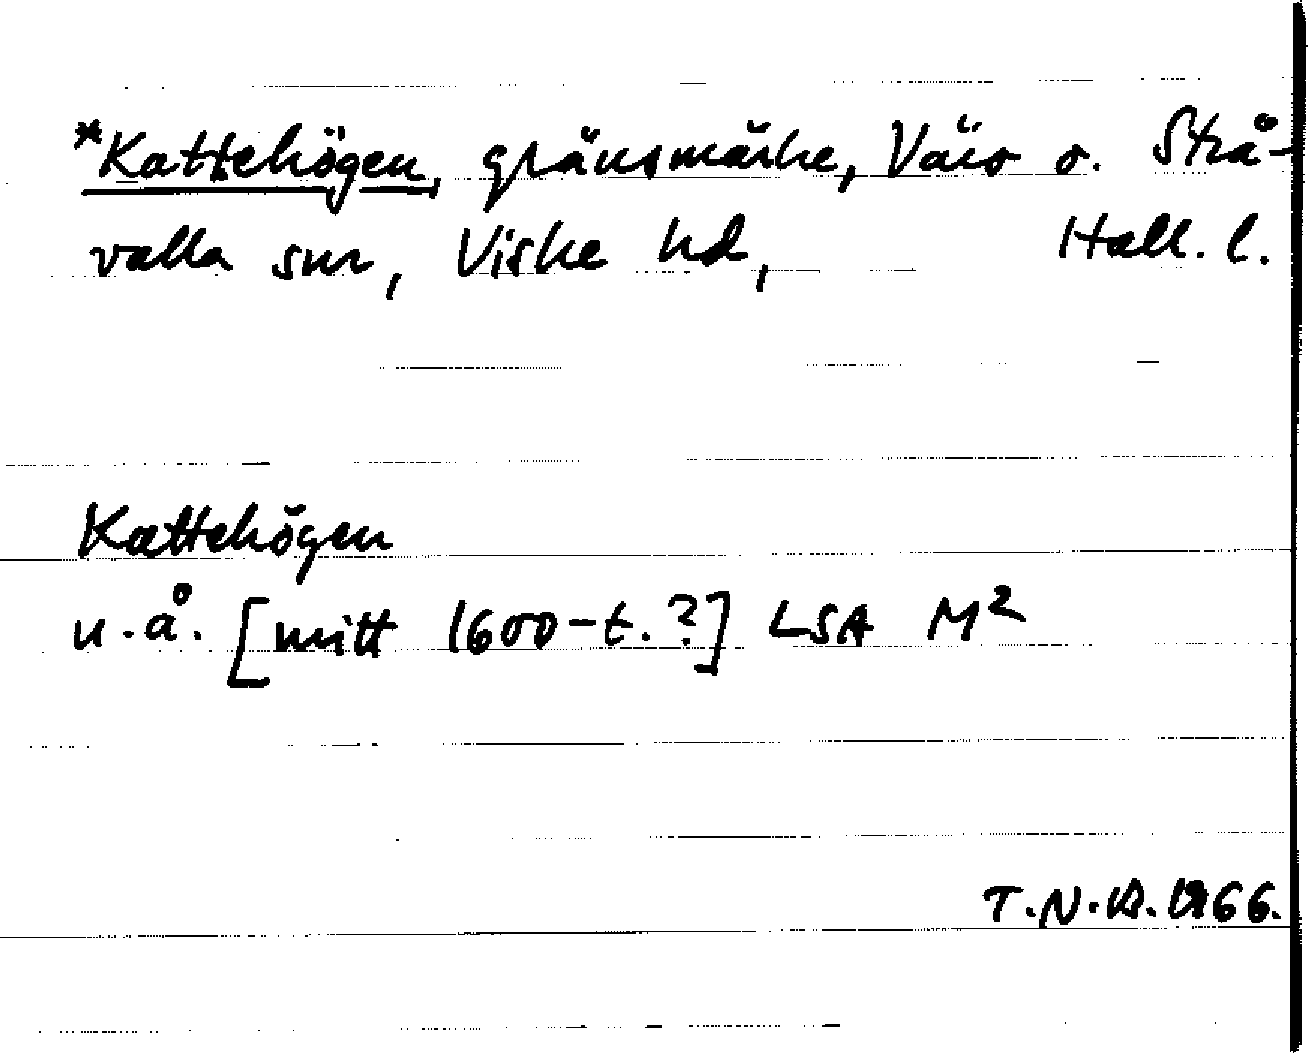 *Kattehögen, gränsmärke, Värö o. Strå-
valla snr, Viske hd, Hall. l.
Kattehögen
u.å. [mitt 1600-t.?] LSA M²
T.N.B. 1966.